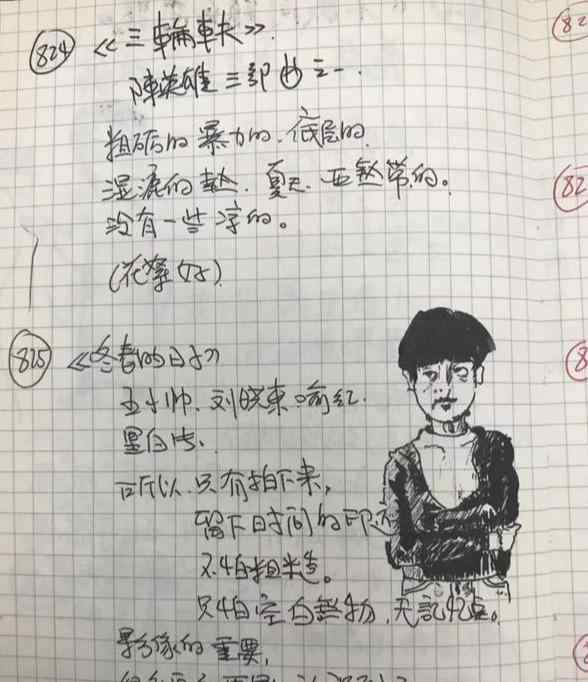 824 《三輪車夫》.
陳英雄三部曲之一.
粗砺的 暴力的. 低层的.
湿漉的 熱. 夏天. 亚熱带的。
没有一些凉的。
825 《冬春的日子》
王小帅. 刘晓東. 喻红.
黑白片.
所以. 只有拍下来,
留下时间的印迹
不怕粗糙。
只怕空白無物, 无記忆点。
影像的重要,
82
82
8